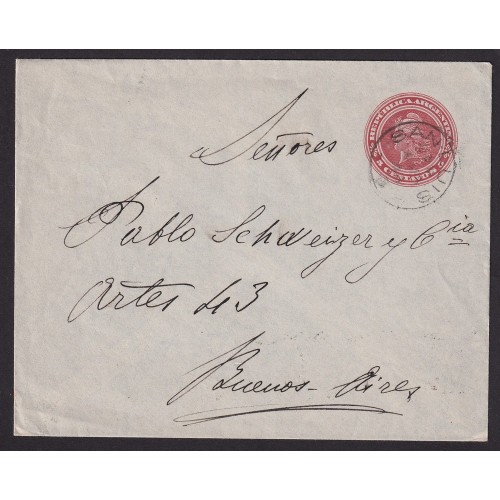 REPUBLICA ARGENTINA
5 CENTAVOS 5
SAN
LUIS
Señores
Pablo Schweizer y Cia
Artes 43
Buenos-Aires